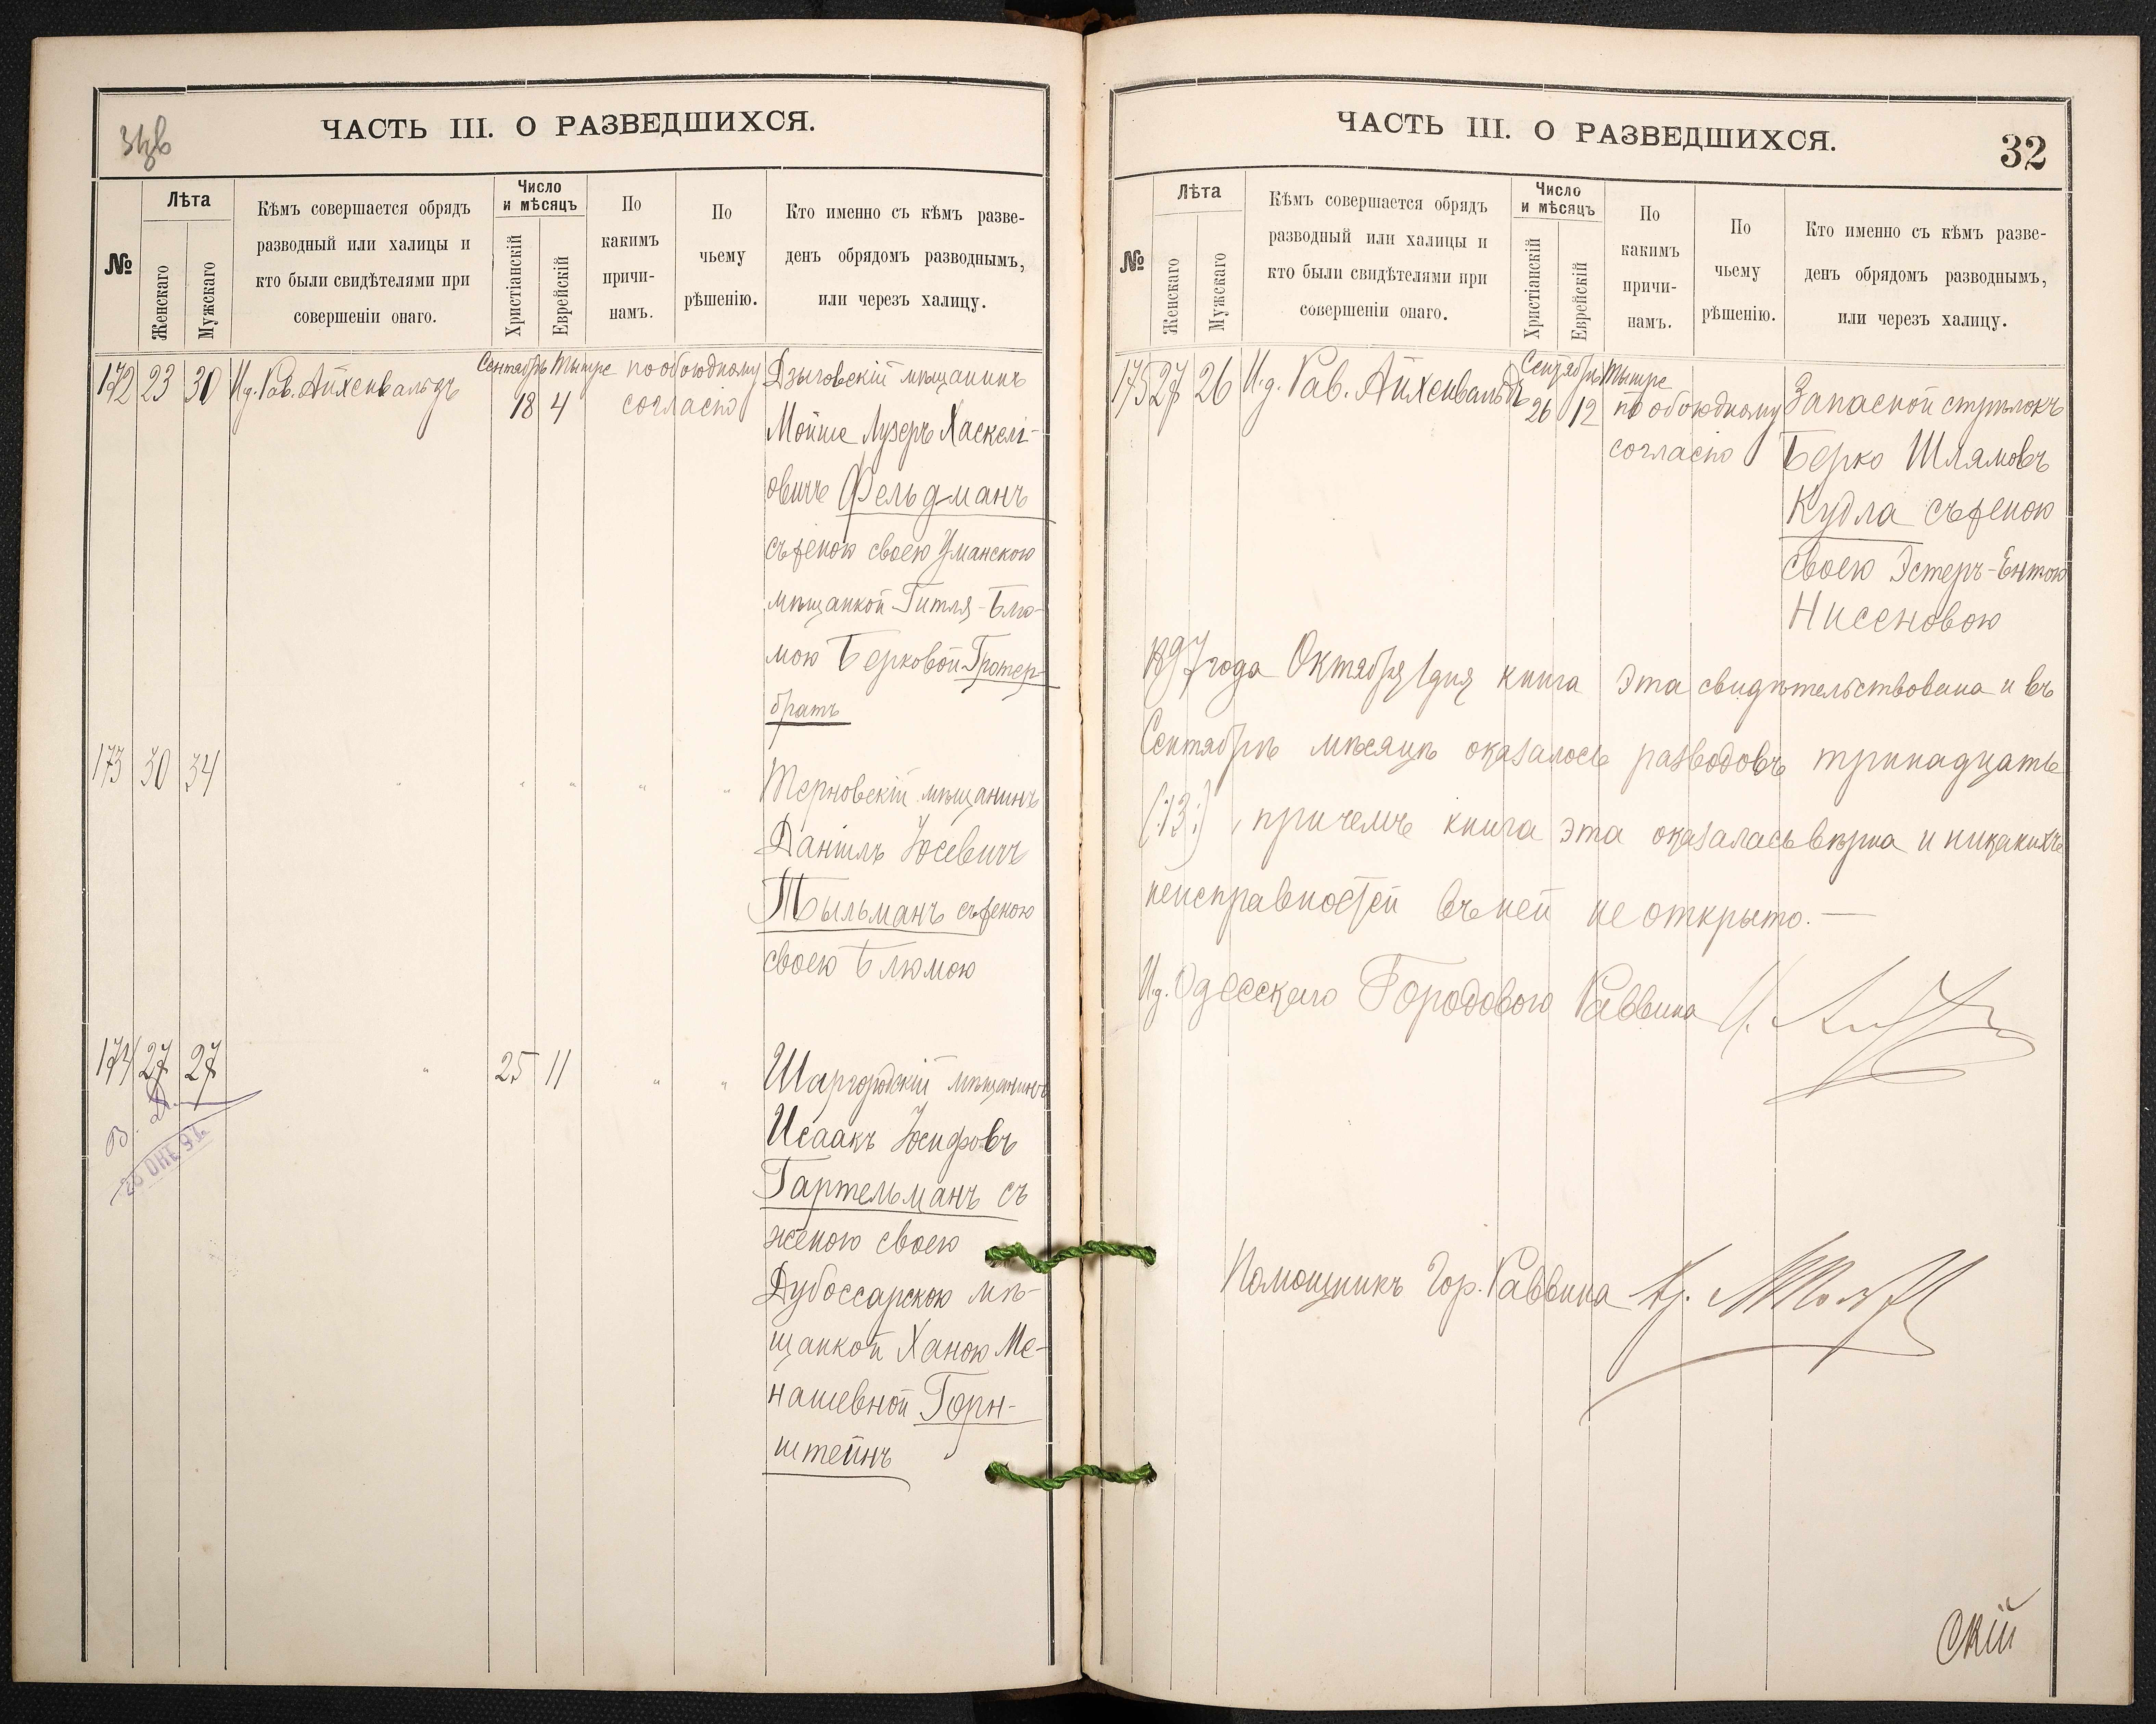 ЧАСТЬ III. О РАЗВЕДШИХСЯ.
№
Лѣта
Женскаго
Мужскаго
Кѣмъ совершается обрядъ
разводный или халицы и
кто были свидѣтелями при
совершеніи онаго.
Число
и мѣсяцъ
Христіанскій
Еврейскій
По
какимъ
причи-
намъ.
По
чьему
рѣшенію.
Кто именно съ кѣмъ разве-
денъ обрядомъ разводнымъ,
или черезъ халицу.
172 23 30 И.д. Рав. Айхенвальдъ
Сентябрь Тышре
18 4
по обоюдному
согласію
Дзыговскій мѣщанинъ
Мойше Лузеръ Хаскелі-
овичъ Фельдманъ
съ женою своею Уманскою
мѣщанкой Гитля-Блю-
мою Берковой Гротер-
братъ
173 30 34 " " " " "
Терновскій мѣщанинъ
Даніилъ Іосевичъ
Тыльманъ съ женою
своею Блюмою
174 27 27 " 25 11 " "
Шаргородскій мѣщанинъ
Исаакъ Іосифовъ
Гартельманъ съ
женою своею
Дубоссарскою мѣ-
щанкой Ханою Ме-
нашевной Горн-
штейнъ
ЧАСТЬ III. О РАЗВЕДШИХСЯ.
32
№
Лѣта
Женскаго
Мужскаго
Кѣмъ совершается обрядъ
разводный или халицы и
кто были свидѣтелями при
совершеніи онаго.
Число
и мѣсяцъ
Христіанскій
Еврейскій
По
какимъ
причи-
намъ.
По
чьему
рѣшенію.
Кто именно съ кѣмъ разве-
денъ обрядомъ разводнымъ,
или черезъ халицу.
175 27 26 И.д. Рав. Айхенвальдъ
Сентябрь Тышре
26 12
по обоюдному
согласію
Запасной стрѣлокъ
Берко Шлямовъ
Кудла съ женою
своею Эстеръ-Ентою
Нисеновою
1897 года Октября 1 дня книга эта свидѣтельствована и въ
Сентябрѣ мѣсяцѣ оказалось разводовъ тринадцать
(:13:), причемъ книга эта оказалась вѣрна и никакихъ
неисправностей въ ней не открыто. —
И.д. Одесскаго Городового Раввина
Помощникъ Гор. Раввина
скій